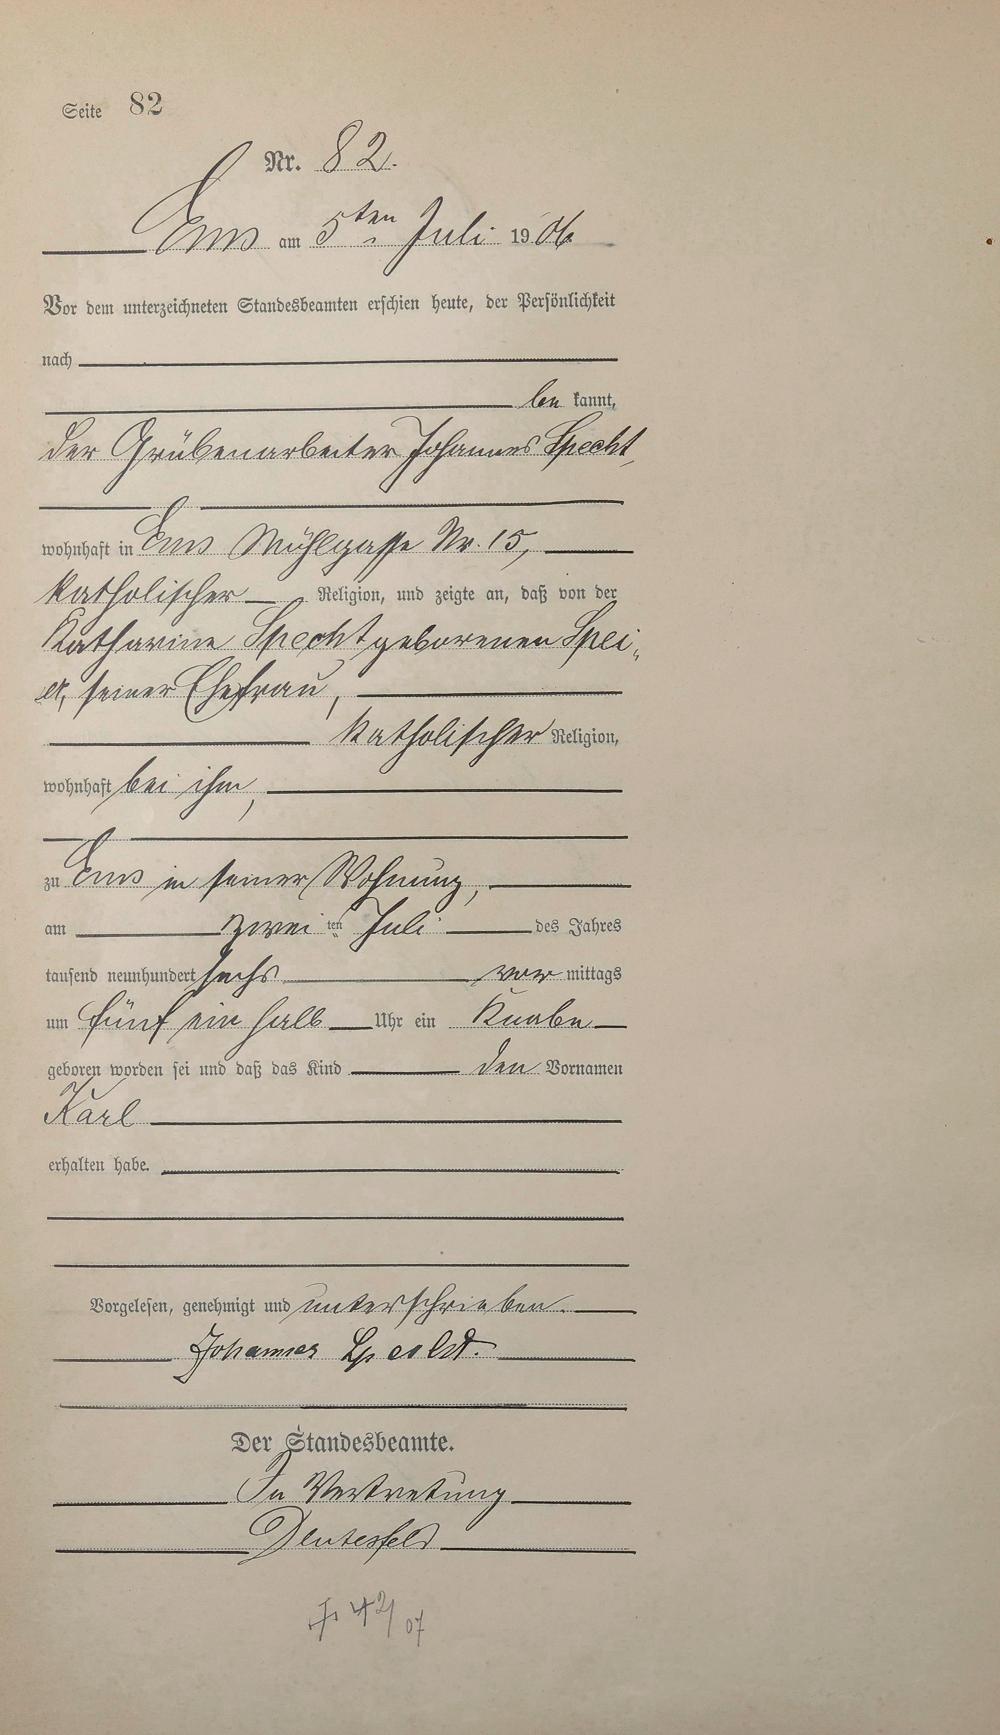 Seite 82
Nr. 82.
Ems am 5ten Juli 1906
Vor dem unterzeichneten Standesbeamten erschien heute, der Persönlichkeit
nach
be kannt,
der Grübenarbeiter Johannes Specht,
wohnhaft in Ems Mühlgasse Nr. 15,
katholischer Religion, und zeigte an, daß von der
Katharine Specht geborenen
seiner Ehefrau,
katholischer Religion,
wohnhaft bei ihm,
zu Ems in seiner Wohnung,
am zwei ten Juli des Jahres
tausend neunhundert sechs vor mittags
um fünf ein halb Uhr ein Knabe
geboren worden sei und daß das Kind den Vornamen
Karl
erhalten habe.
Vorgelesen, genehmigt und unterschrieben.
Johannes Specht.
Der Standesbeamte.
In Vertretung
07